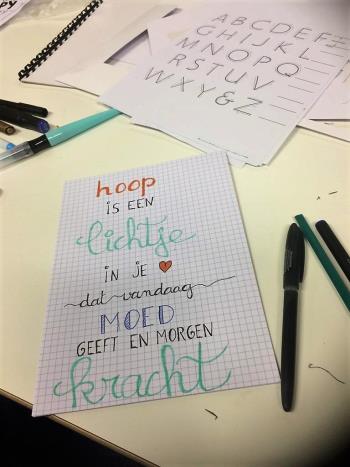 PY
ABCDEF
GHIJKL
MNOPQ
RSTUV
WXY&Z
hoop
IS EEN
lichtje
IN JE
dat vandaag
MOED
GEEFT EN MORGEN
kracht